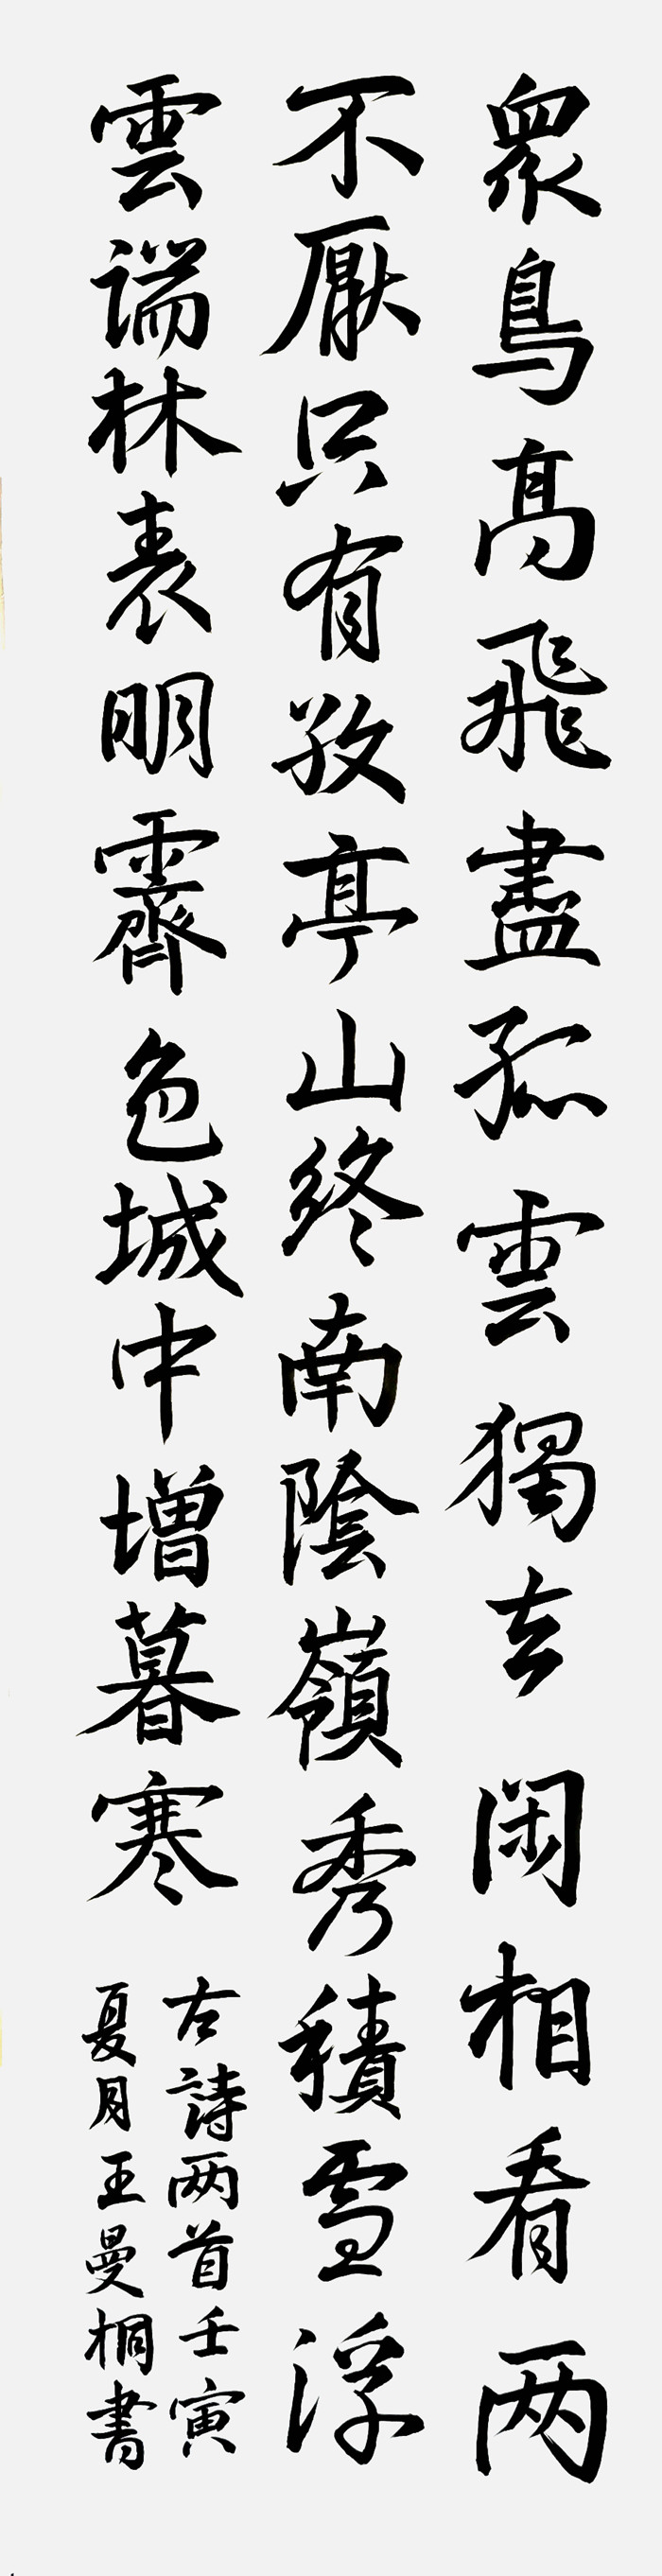 眾鳥高飛盡孤雲獨去閑相看两
不厭只有敬亭山終南陰嶺秀積雪浮
雲端林表明霽色城中增暮寒
古詩两首壬寅
夏月王曼桐書